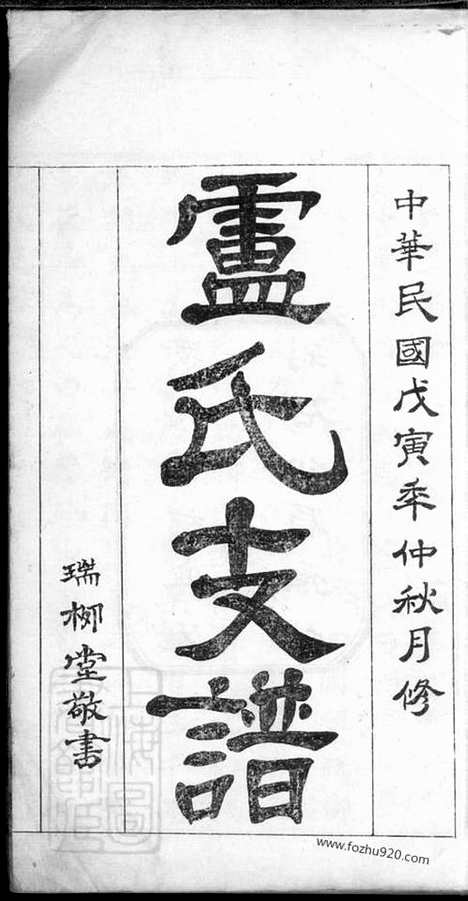 中華民國戊寅年仲秋月修
盧氏支譜
瑞栁堂敬書
www.fozhu920.com